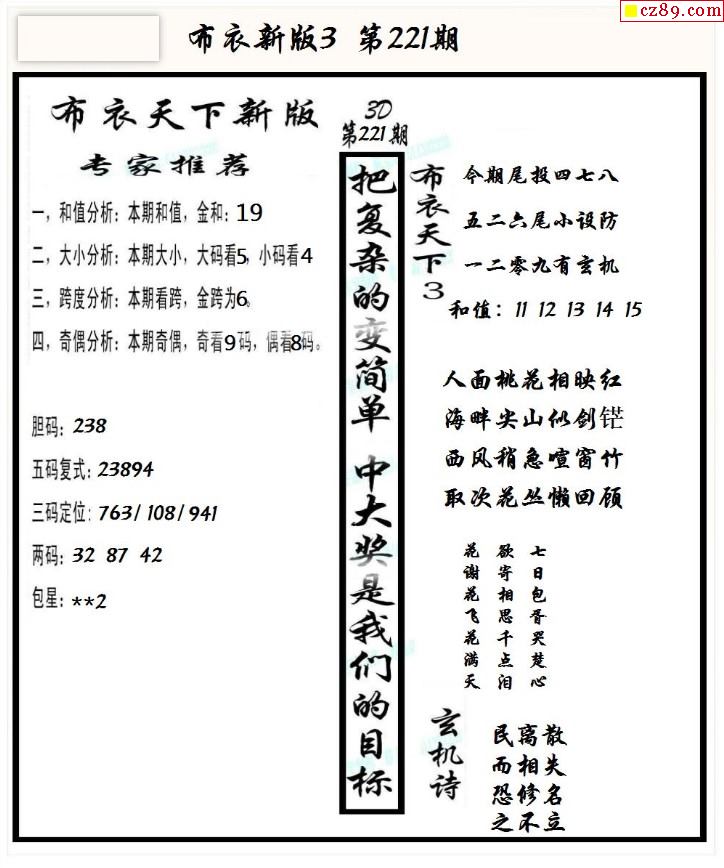 cz89.com
布衣新版3 第221期
布衣天下新版
专家推荐
一，和值分析：本期和值，金和：19
二，大小分析：本期大小，大码看5，小码看4
三，跨度分析：本期看跨，金跨为6。
四，奇偶分析：本期奇偶，奇看9码，偶看8码。
胆码：238
五码复式：23894
三码定位：763/108/941
两码：32 87 42
包星：**2
3D
第221期
把复杂的变简单 中大奖是我们的目标
布衣天下3
今期尾投四七八
五二六尾小设防
一二零九有玄机
和值：11 12 13 14 15
人面桃花相映红
海畔尖山似剑铓
西风稍急喧窗竹
取次花丛懒回顾
七日包胥哭楚心
欲寄相思千点泪
花谢花飞花满天
玄机诗
民离散
而相失
恐修名
之不立